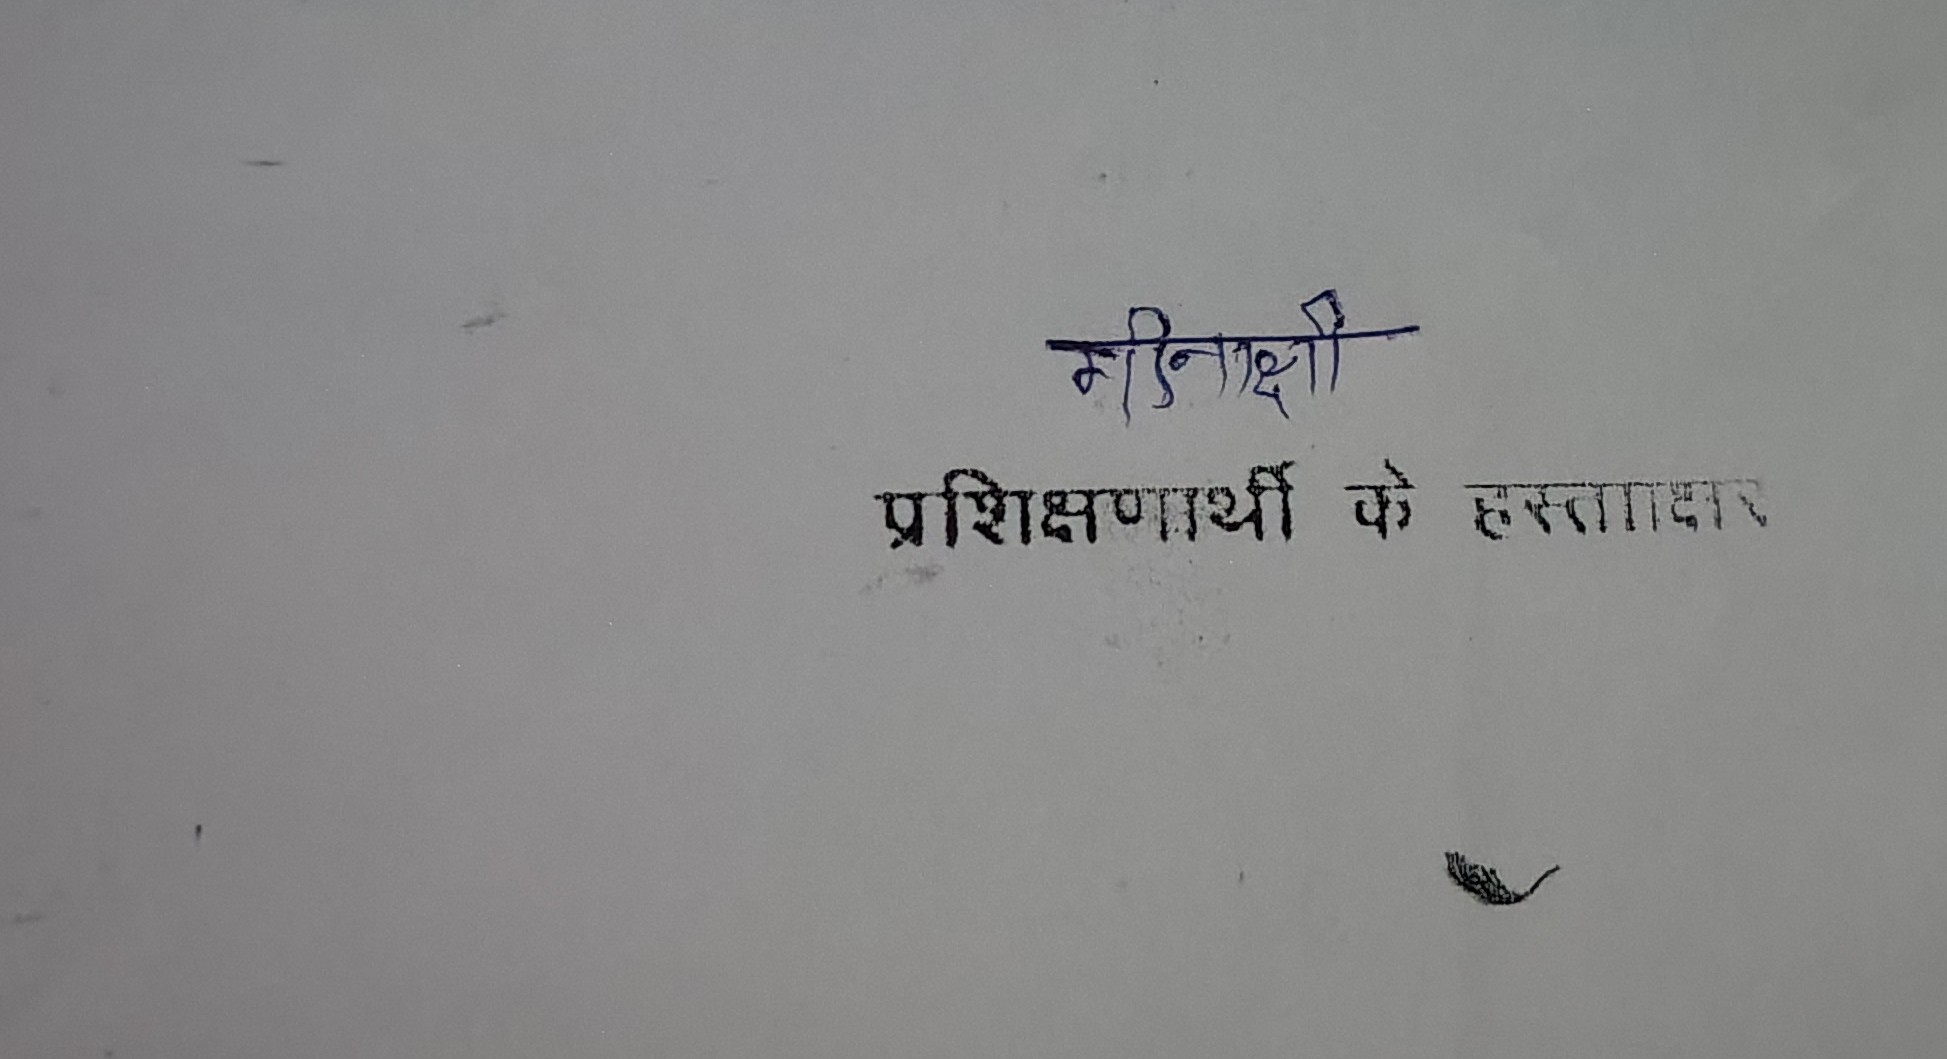 मीनाक्षी
प्रशिक्षणार्थी के हस्ताक्षर